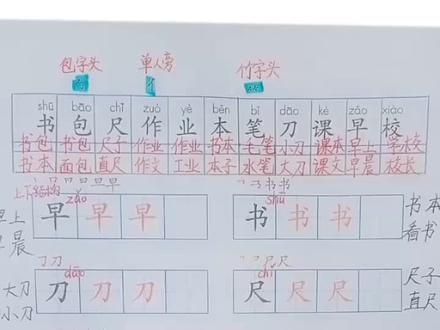 包字头 单人旁 竹字头
shū bāo chǐ zuò yè běn bǐ dāo kè zǎo xiào
书 包 尺 作 业 本 笔 刀 课 早 校
书包 书包 尺子 作业 作业 书本 毛笔 小刀 课本 早上 学校
书本 面包 直尺 作文 工业 本子 水笔 大刀 课文 早晨 校长
上下结构
zǎo shū
早上 早 早 早 书 书 书 书本
早晨 看书
dāo chǐ
大刀 刀 刀 刀 尺 尺 尺 尺子
小刀 直尺